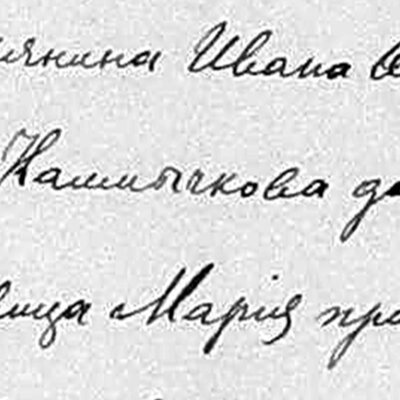 янина Ивана
Калмычкова до
вица Марія пр